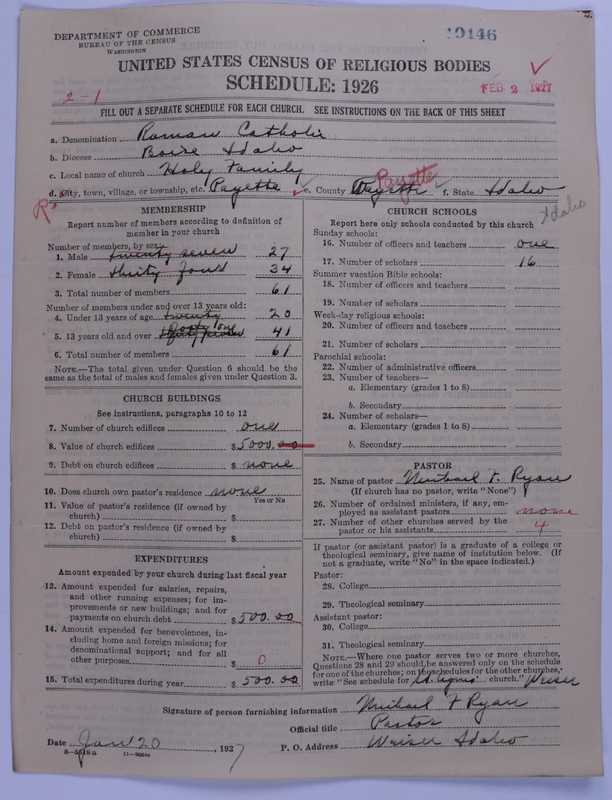 DEPARTMENT OF COMMERCE
BUREAU OF THE CENSUS
WASHINGTON
19146
UNITED STATES CENSUS OF RELIGIOUS BODIES
SCHEDULE: 1926
FEB 2 1927
2-1
FILL OUT A SEPARATE SCHEDULE FOR EACH CHURCH. SEE INSTRUCTIONS ON THE BACK OF THIS SHEET
a. Denomination Roman Catholic
b. Diocese Boise Idaho
c. Local name of church Holy Family
d. City, town, village, or township, etc. Payette e. County Payette Payette f. State Idaho
Idaho
MEMBERSHIP
Report number of members according to definition of member in your church
Number of members, by sex:
1. Male twenty seven 27
2. Female thirty four 34
3. Total number of members 61
Number of members under and over 13 years old:
4. Under 13 years of age twenty 20
5. 13 years old and over forty one 41
6. Total number of members 61
NOTE.—The total given under Question 6 should be the same as the total of males and females given under Question 3.
CHURCH BUILDINGS
See instructions, paragraphs 10 to 12
7. Number of church edifices one
8. Value of church edifices $5000.00
9. Debt on church edifices $ none
10. Does church own pastor's residence none
Yes or No
11. Value of pastor's residence (if owned by church) $
12. Debt on pastor's residence (if owned by church) $
EXPENDITURES
Amount expended by your church during last fiscal year
13. Amount expended for salaries, repairs, and other running expenses; for improvements or new buildings; and for payments on church debt $500.00
14. Amount expended for benevolences, including home and foreign missions; for denominational support; and for all other purposes $ 0
15. Total expenditures during year $500.00
CHURCH SCHOOLS
Report here only schools conducted by this church
Sunday schools:
16. Number of officers and teachers one
17. Number of scholars 16
Summer vacation Bible schools:
18. Number of officers and teachers
19. Number of scholars
Week-day religious schools:
20. Number of officers and teachers
21. Number of scholars
Parochial schools:
22. Number of administrative officers
23. Number of teachers—
a. Elementary (grades 1 to 8)
b. Secondary
24. Number of scholars—
a. Elementary (grades 1 to 8)
b. Secondary
PASTOR
25. Name of pastor Michael F. Ryan
(If church has no pastor, write "None")
26. Number of ordained ministers, if any, employed as assistant pastors none
27. Number of other churches served by the pastor or his assistants 4
If pastor (or assistant pastor) is a graduate of a college or theological seminary, give name of institution below. (If not a graduate, write "No" in the space indicated.)
Pastor:
28. College
29. Theological seminary
Assistant pastor:
30. College
31. Theological seminary
NOTE.—Where one pastor serves two or more churches, Questions 28 and 29 should be answered only on the schedule for one of the churches; on the schedules for the other churches, write "See schedule for St. Agnes church." Weiser
Signature of person furnishing information Michael F Ryan
Official title Pastor
Date Jan 20, 1927 P. O. Address Weiser Idaho